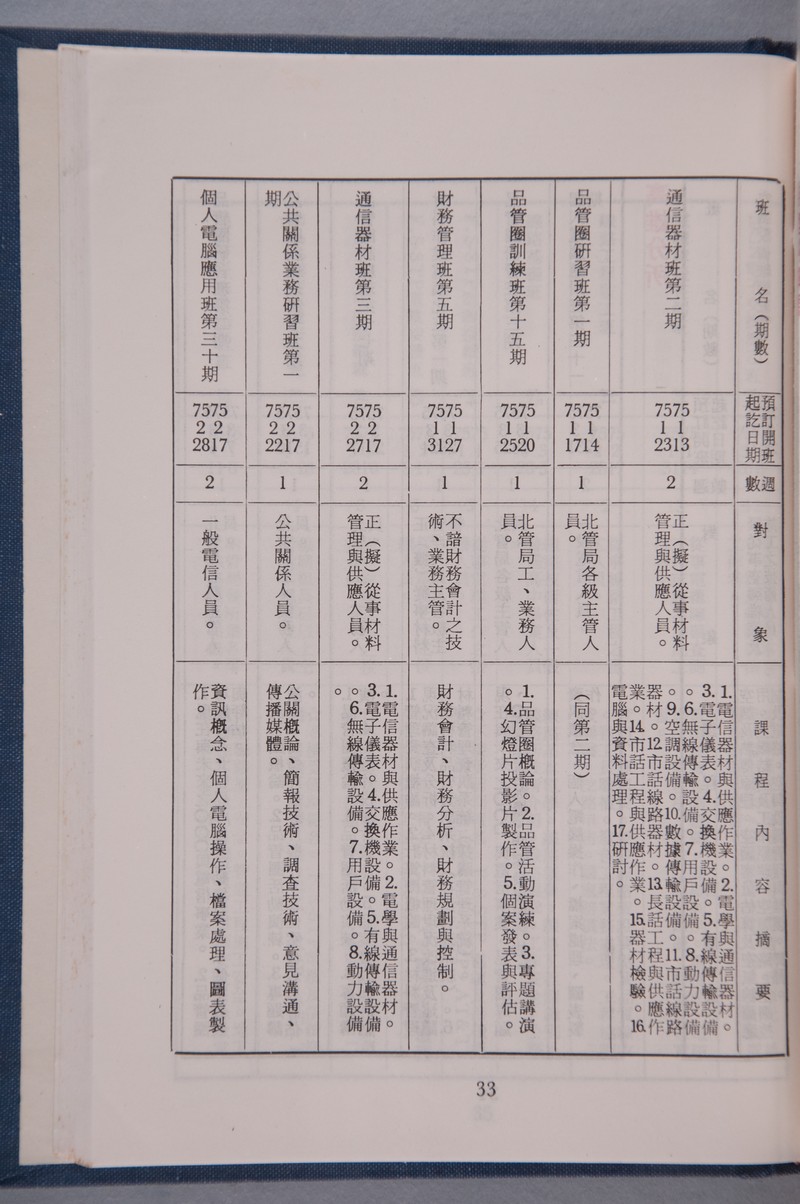 班名（期數）
預訂開班
起訖日期
週數
對象
課程內容摘要
通信器材班第二期
75 1 13
75 1 23
2
正（擬）從事材料
管理與供應人員。
1.電信器材與供應作業。2.電學與通信器材。
3.電子儀表。4.交換機設備。5.有線傳輸設備
。6.無線傳輸設備。7.用戶設備。8.動力設備
。9.空調設備。10.數據傳輸設備。11.市話線路
器材。12.市話線路器材。13.長話工程與供應作
業。14.市話工程與供應作業。15.器材檢驗。16.
電腦與資料處理。17.研討。
品管圈研習班第一期
75 1 14
75 1 17
1
北管局各級主管人
員。
（同第二期）
品管圈訓練班第十五期
75 1 20
75 1 25
1
北管局工、業務人
員。
1.品管圈概論。2.品管活動演練。3.專題講演
。4.幻燈片投影片製作。5.個案發表與評估。
財務管理班第五期
75 1 27
75 1 31
1
不諳財務會計之技
術、業務主管。
財務會計、財務分析、財務規劃與控制。
通信器材班第三期
75 2 17
75 2 27
2
正（擬）從事材料
管理與供應人員。
1.電信器材與供應作業。2.電學與通信器材。
3.電子儀表。4.交換機設備。5.有線傳輸設備
。6.無線傳輸設備。7.用戶設備。8.動力設備
。
公共關係業務研習班第一
期
75 2 17
75 2 22
1
公共關係人員。
公關概論、簡報技術、調查技術、意見溝通、
傳播媒體。
個人電腦應用班第三十期
75 2 17
75 2 28
2
一般電信人員。
資訊概念、個人電腦操作、檔案處理、圖表製
作。
33